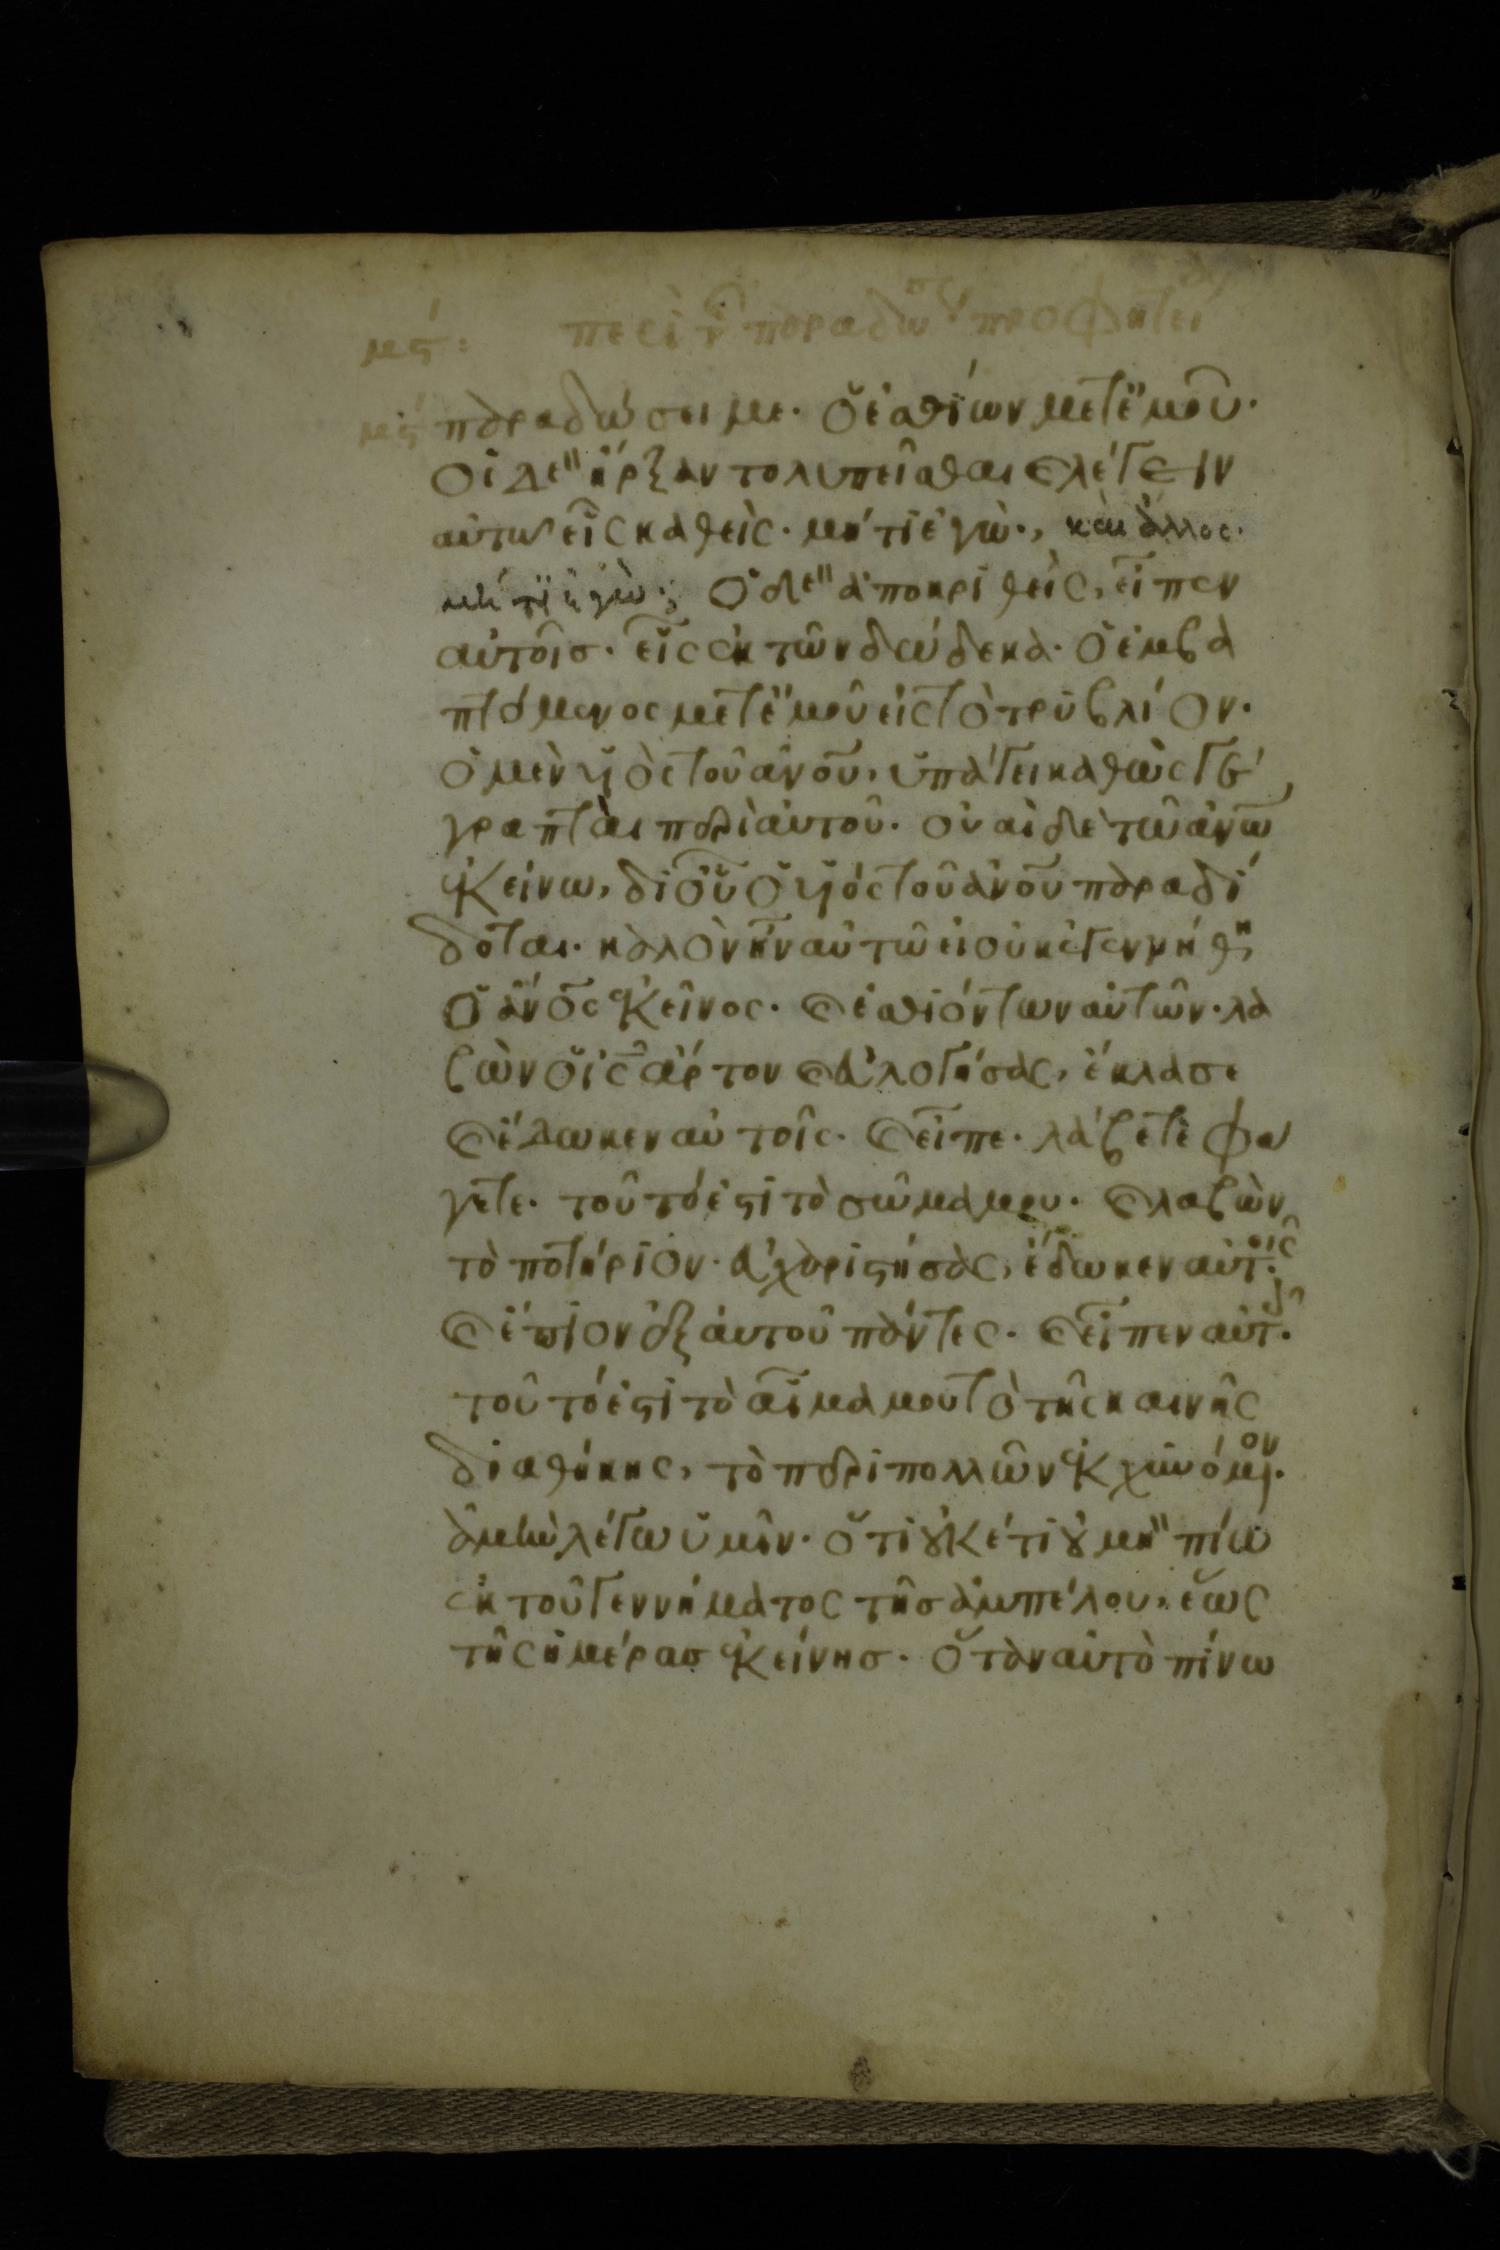 μϛ: περὶ τῆς παραδώσεως προφητεί
μϛ παραδώσει με· ὁ ἐσθίων μετ ἐμοῦ·
οἱ δὲ ἤρξαντο λυπεῖσθαι καὶ λέγειν
αὐτῶ εἷς καθεὶς· μήτι ἐγὼ·, καὶ ἄλλος·
μήτι ἐγὼ·; ὁ δὲ ἀποκριθεὶς, εἶπεν
αὐτοῖσ· εἷς ἐκ τῶν δώδεκα· ὁ ἐμβα
πτόμενος μετ ἐμοῦ εἰς τὸ τρυβλίον·
ὁ μὲν υἱὸς τοῦ ἀνου, ὑπάγει καθὼς γέ
γραπται περὶ αὐτοῦ· οὐαὶ δὲ τῶ ἀνω
ἐκείνω, δι οὗ ὁ υἱός τοῦ ἀνου παραδί
δοται· καλὸν ἦν αὐτῶ εἰ οὐκ ἐγεννήθη
ὁ ἄνος ἐκεῖνος· καὶ ἐσθιόντων αὐτῶν· λα
βὼν ὁ ις ἄρτον καὶ εὐλογήσας, ἔκλασε
καὶ ἔδωκεν αὐτοῖς· καὶ εἶπε· λάβετε φά
γετε· τοῦτό ἐστι τὸ σῶμα μου· καὶ λαβὼν
τὸ ποτήριον· εὐχαριστήσας, ἔδωκεν αὐτοῖς·
καὶ ἔπιον ἐξ αὐτοῦ πάντες· καὶ εἶπεν αὐτοῖς·
τοῦτό ἐστι τὸ αἷμα μου τὸ τῆς καινῆς
διαθήκης, τὸ περὶ πολλῶν ἐκχυνόμενον·
ἀμὴν λέγω ὑμῖν· ὅτι οὐκέτι οὐ μὴ πίω
ἐκ τοῦ γεννήματος τῆσ ἀμπέλου, ἕως
τῆς ἡμέρασ ἐκείνησ· ὅταν αὐτὸ πίνω